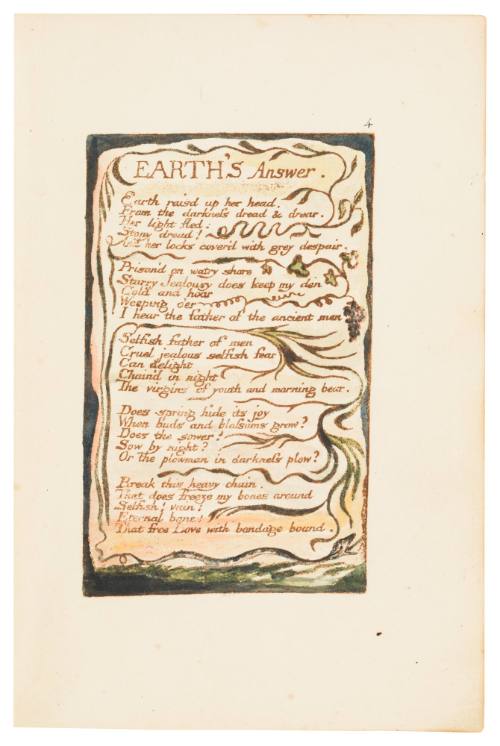 4
EARTH'S Answer.
Earth rais'd up her head.
From the darkness dread & drear.
Her light fled:
Stony dread!
And her locks cover'd with grey despair.
Prison'd on watry shore
Starry Jealousy does keep my den
Cold and hoar
Weeping o'er
I hear the father of the ancient men
Selfish father of men
Cruel jealous selfish fear
Can delight
Chain'd in night
The virgins of youth and morning bear.
Does spring hide its joy
When buds and blossoms grow?
Does the sower?
Sow by night?
Or the plowman in darkness plow?
Break this heavy chain.
That does freeze my bones around
Selfish! vain!
Eternal bane!
That free Love with bondage bound.